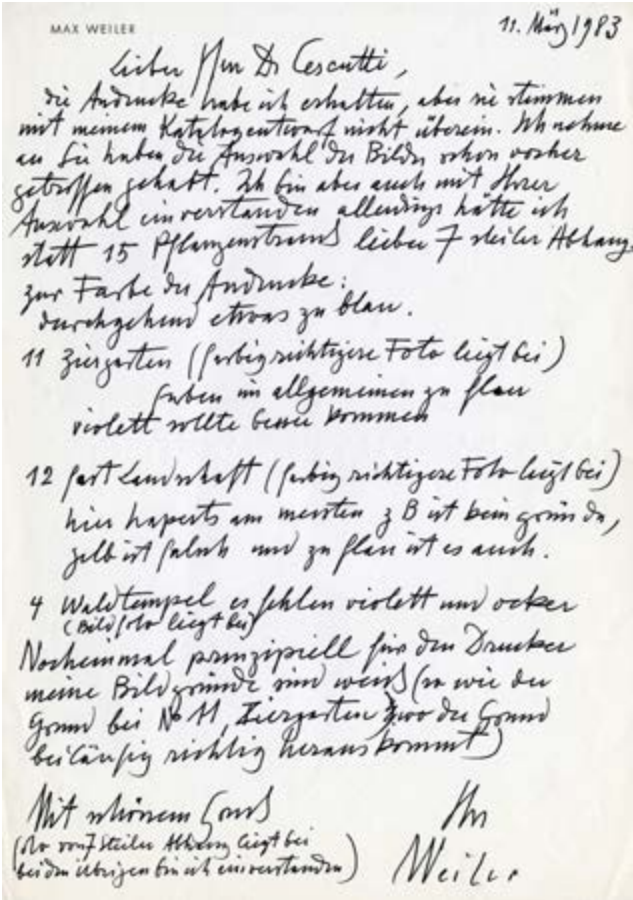 MAX WEILER
11. März 1983
Lieber Herr Dr Cescutti,
die Andrucke habe ich erhalten, aber sie stimmen
mit meinem Katalogentwurf nicht überein. Ich nehme
an Sie haben die Auswahl der Bilder schon vorher
getroffen gehabt. Ich bin aber auch mit Ihrer
Auswahl einverstanden allerdings hätte ich
statt 15 Pflanzenstrauß lieber 7 steiler Abhang.
zur Farbe der Andrucke:
durchgehend etwas zu blau.
11 Ziergarten (farbig richtigere Foto liegt bei)
Farben im allgemeinen zu flau
violett sollte besser kommen
12 fast Landschaft (farbig richtigere Foto liegt bei)
hier haperts am meisten z B ist kein grün da,
gelb ist falsch und zu flau ist es auch.
4 Waldtempel es fehlen violett und ocker
(Bildfoto liegt bei)
Nocheinmal prinzipiell für den Drucker
meine Bildgründe sind weiß (so wie der
Grund bei No 11, Ziergarten, wo der Grund
beiläufig richtig herauskommt)
Mit schönem Gruß
Ihr
(Foto von 7 steiler Abhang liegt bei
bei den übrigen bin ich einverstanden)
Weiler